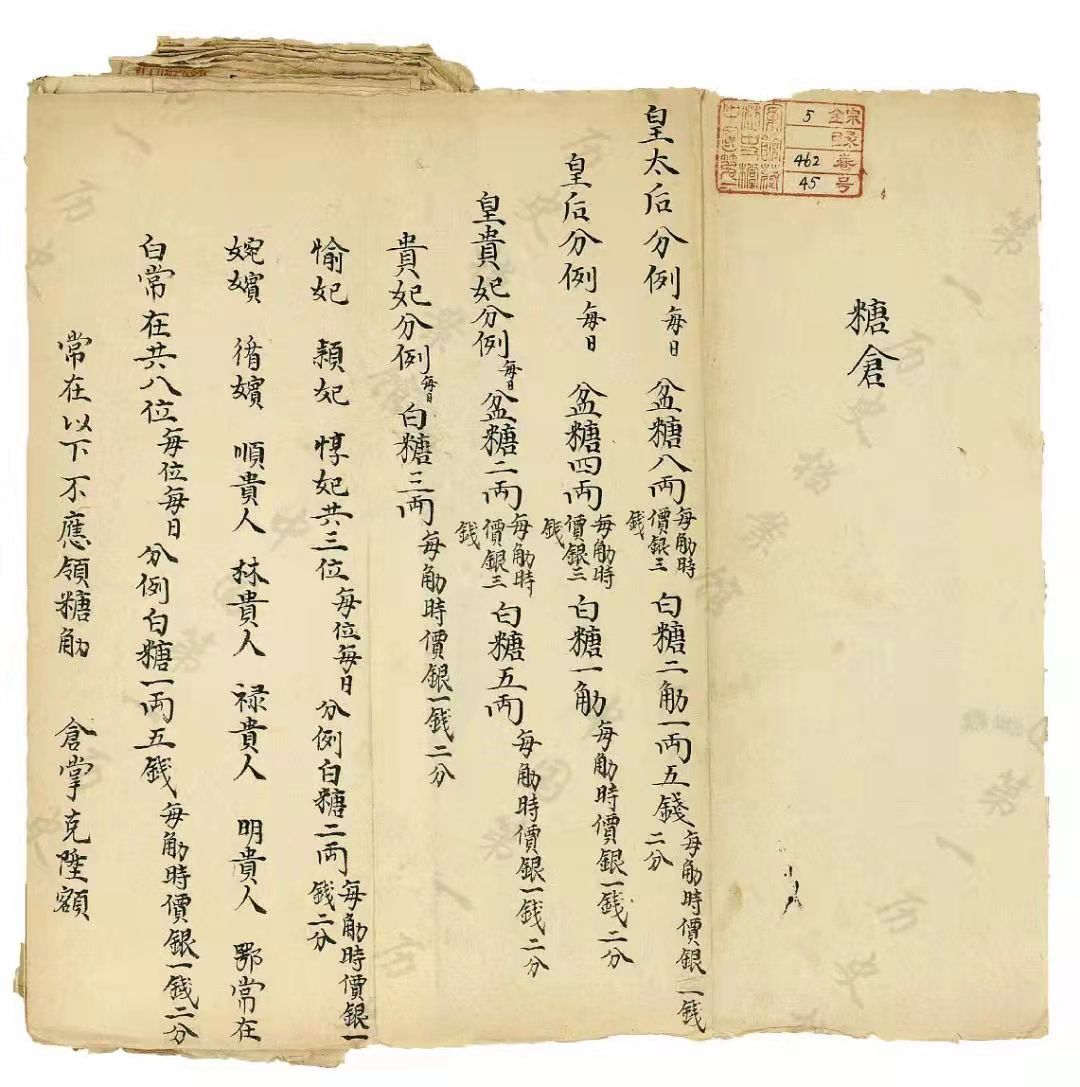 糖倉
皇太后分例每日盆糖八両每觔時價銀三錢白糖二觔一両五錢每觔時價銀一錢二分
皇后分例每日盆糖四両每觔時價銀三錢白糖一觔每觔時價銀一錢二分
皇貴妃分例每日盆糖二両每觔時價銀三錢白糖五両每觔時價銀一錢二分
貴妃分例每日白糖三両每觔時價銀一錢二分
愉妃 穎妃 惇妃共三位每位每日分例白糖二両每觔時價銀一錢二分
婉嬪 循嬪 順貴人 林貴人 禄貴人 明貴人 鄂常在
白常在共八位每位每日分例白糖一両五錢每觔時價銀一錢二分
常在以下不應領糖觔 倉掌克陞額
5
462
45